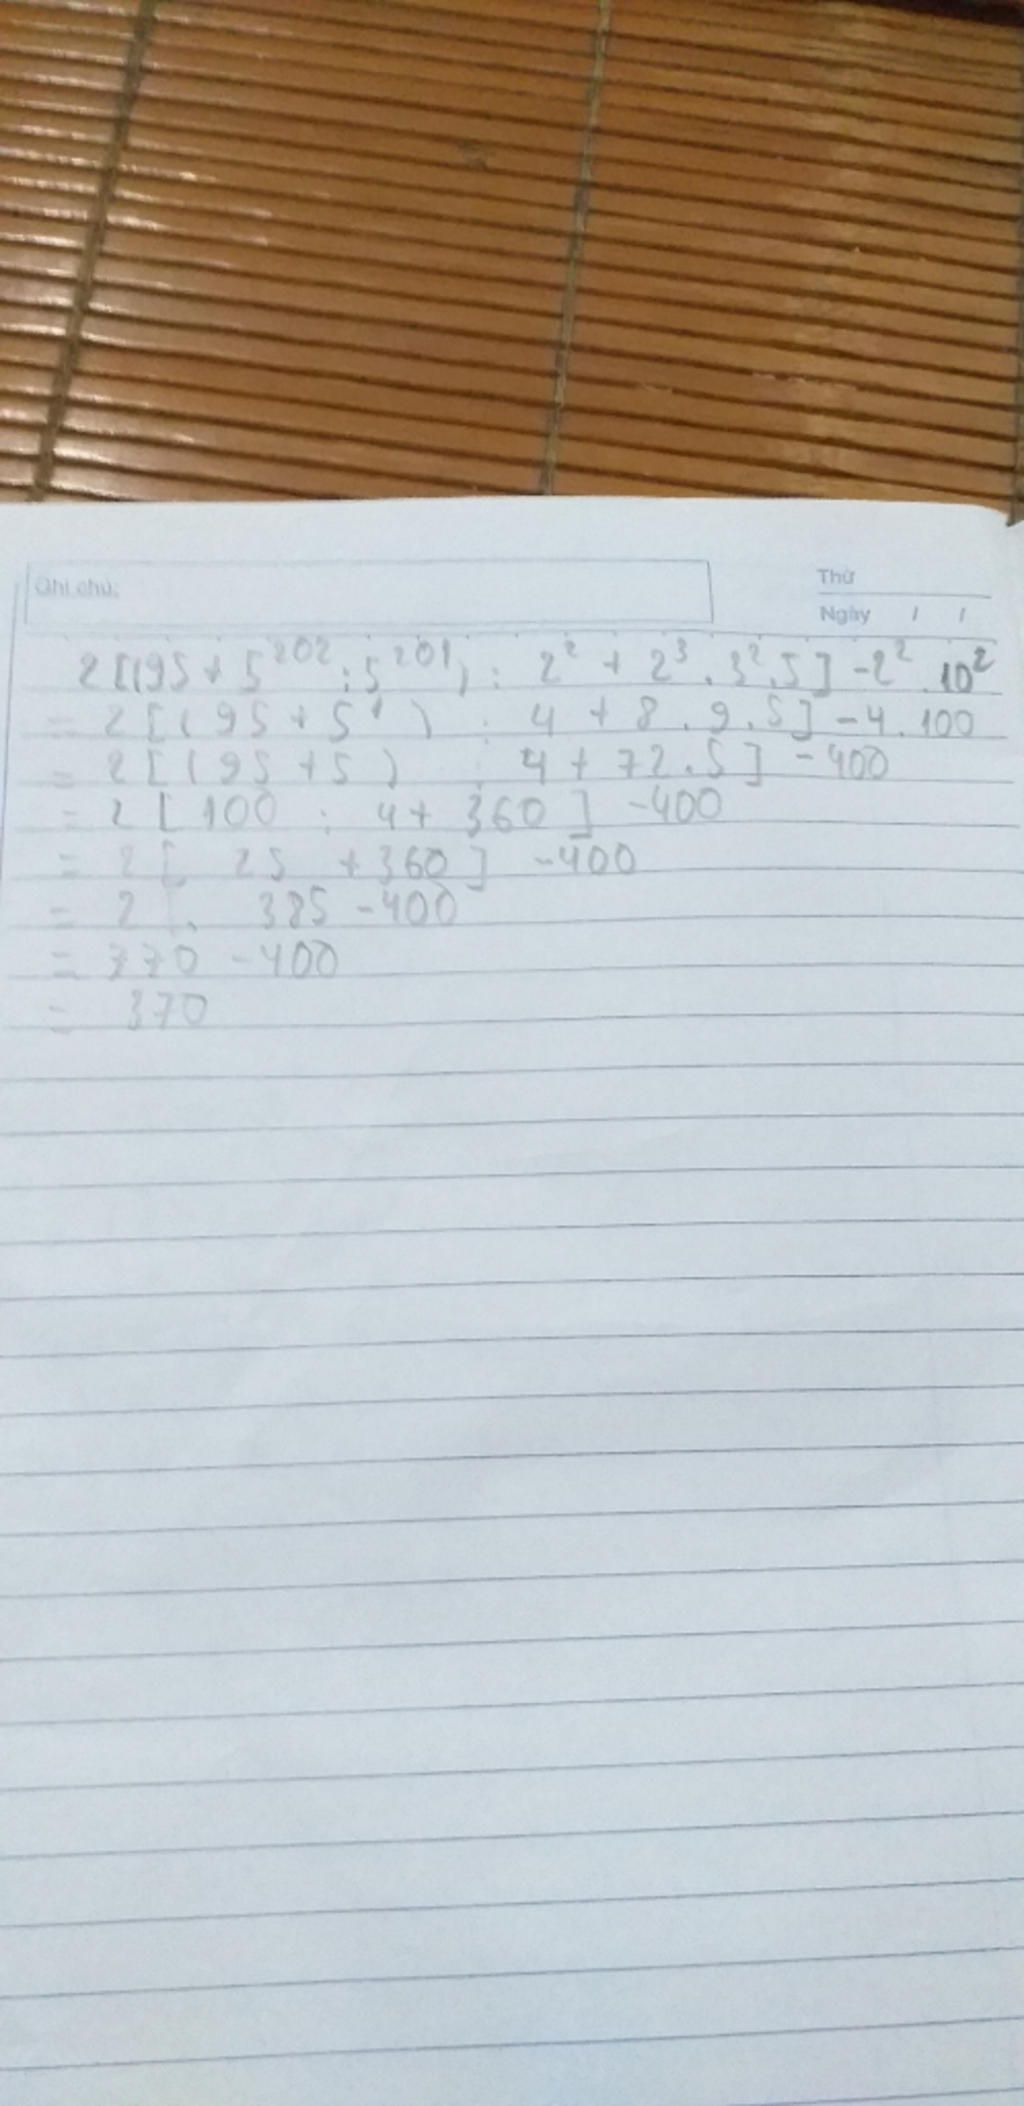 Ghi chú:
Thứ
Ngày / /
2[(95 + 5²⁰² : 5²⁰¹) : 2² + 2³ . 3² . 5] - 2² . 10²
= 2[(95 + 5¹) : 4 + 8 . 9 . 5] - 4 . 100
= 2[(95 + 5) : 4 + 72 . 5] - 400
= 2[100 : 4 + 360] - 400
= 2[ 25 + 360] - 400
= 2 . 385 - 400
= 770 - 400
= 370